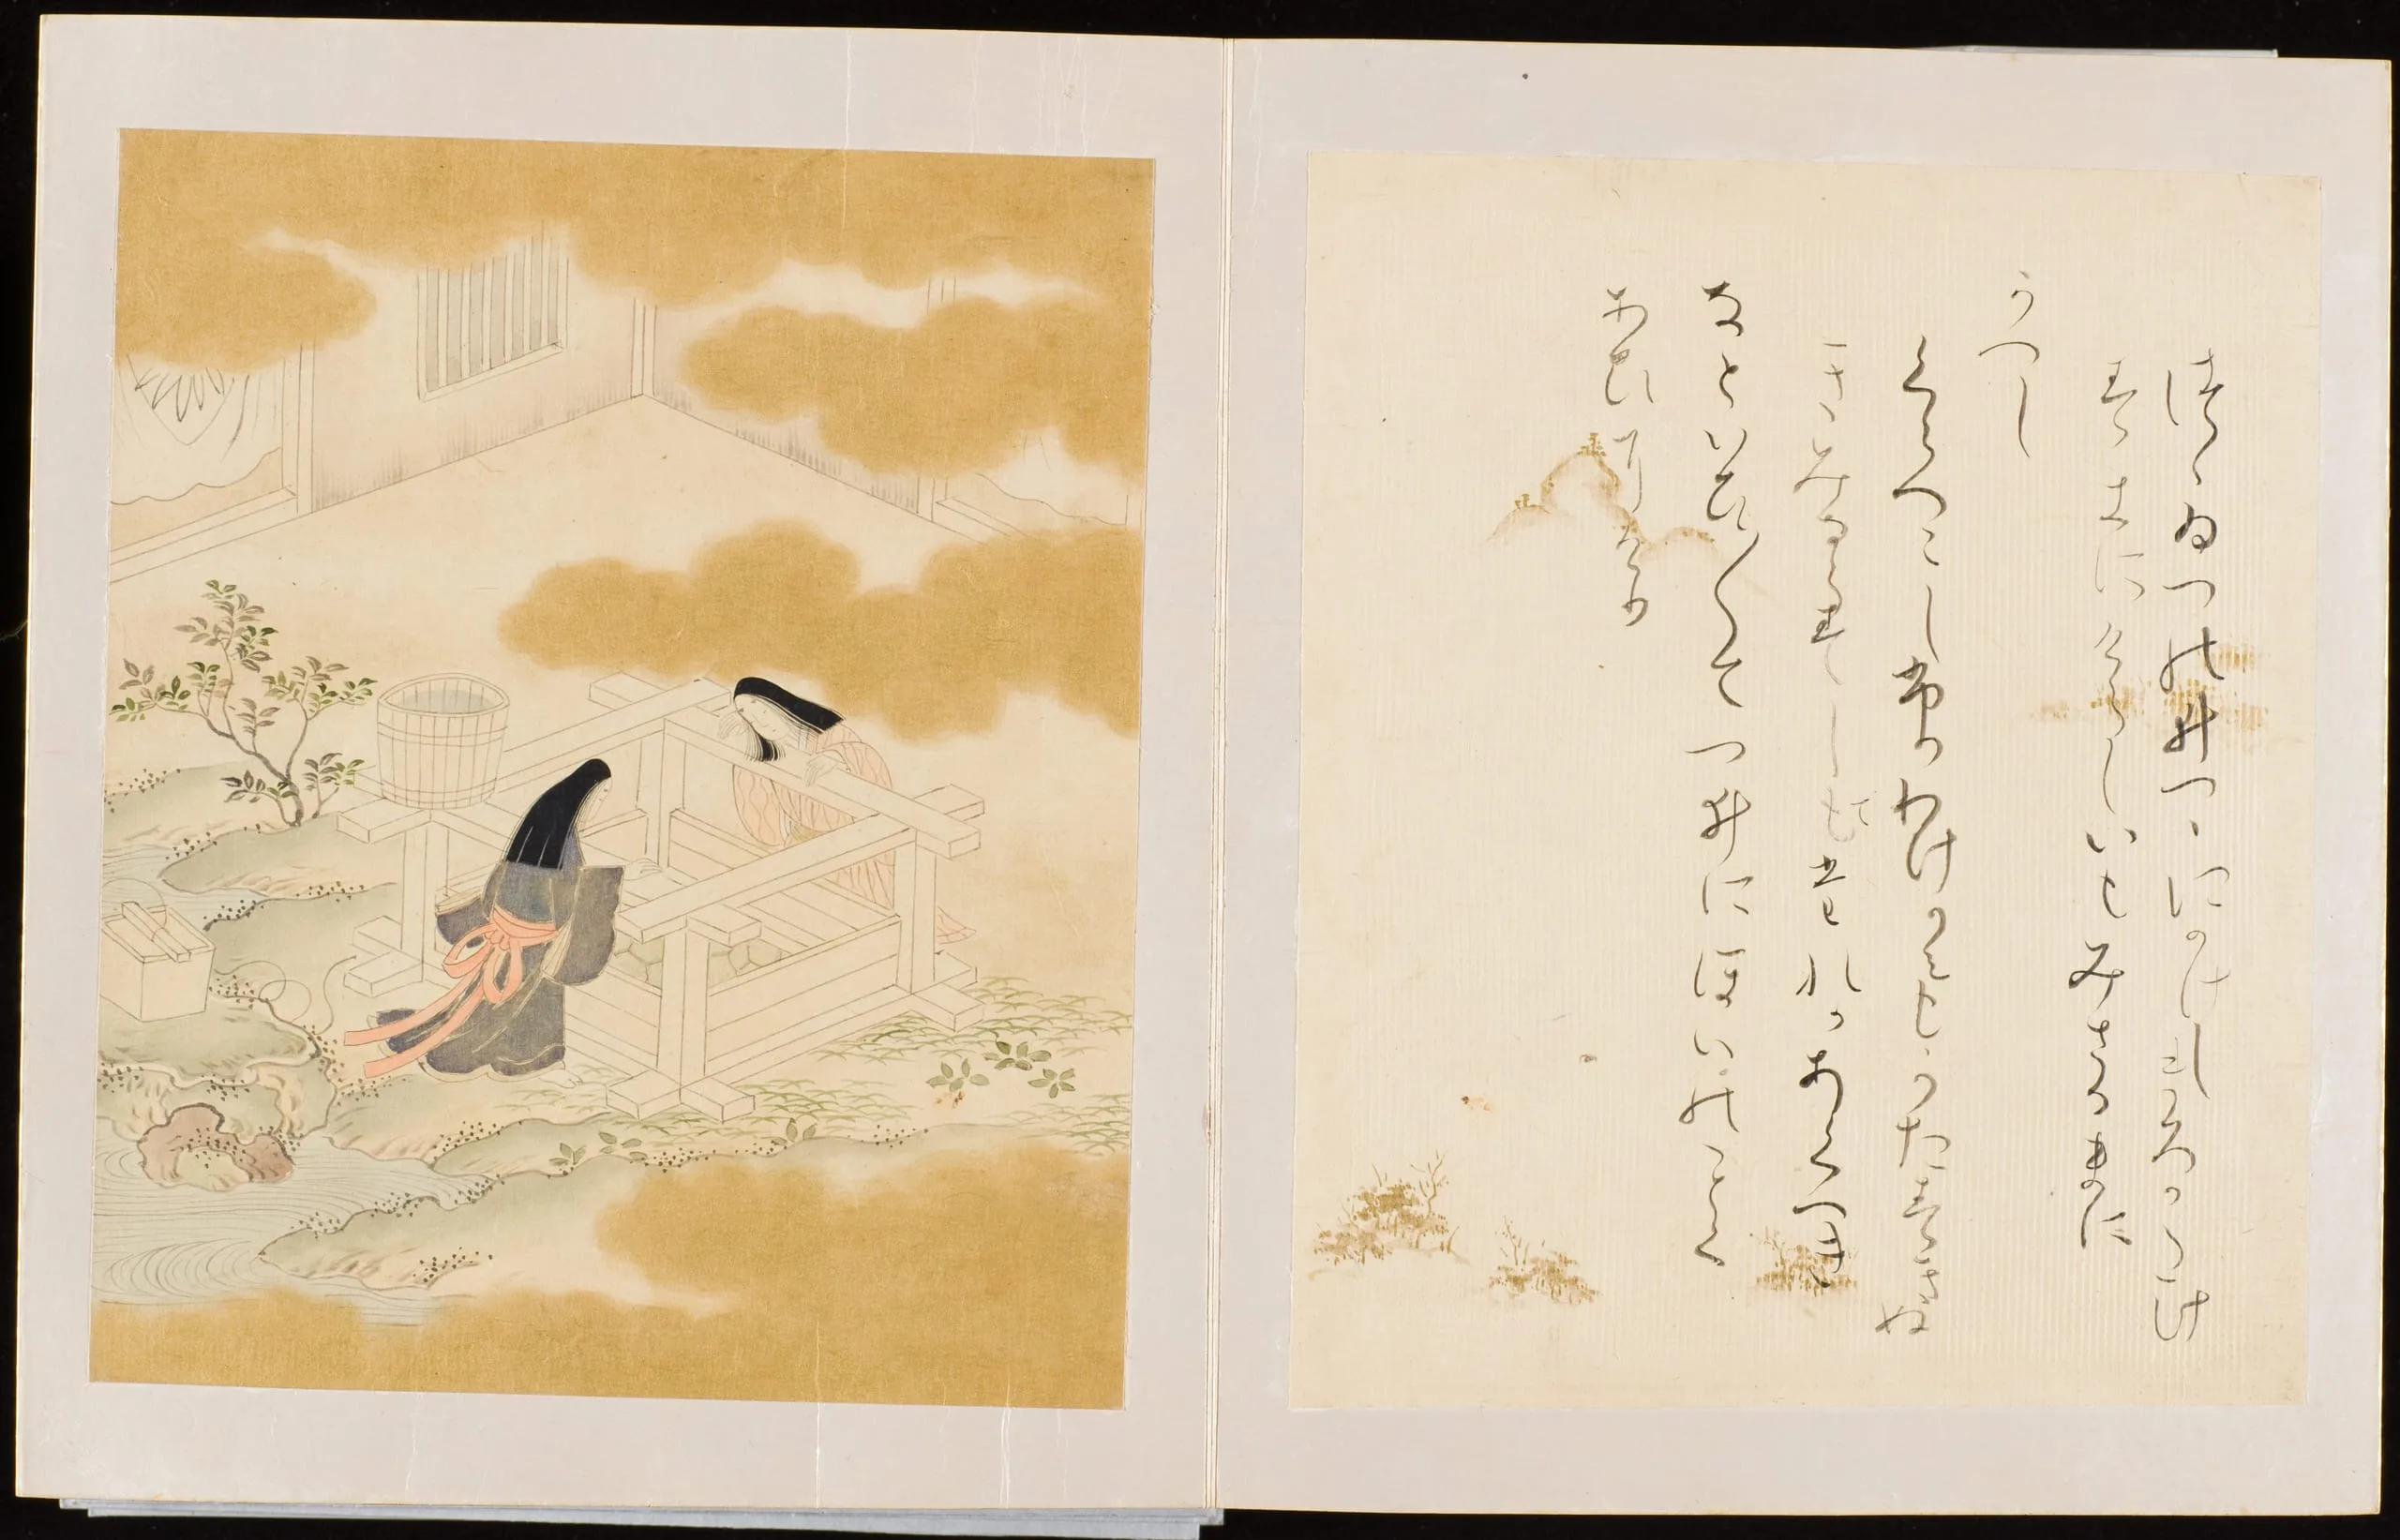 つゝゐつの井つゝにかけしまろかたけ
すきにけらしないもみさるまに
かへし
くらへこしふりわけかみもかたすきぬ
きみならすしてたれかあくへき
なといひ〱てつゐにほいのことく
あひにける